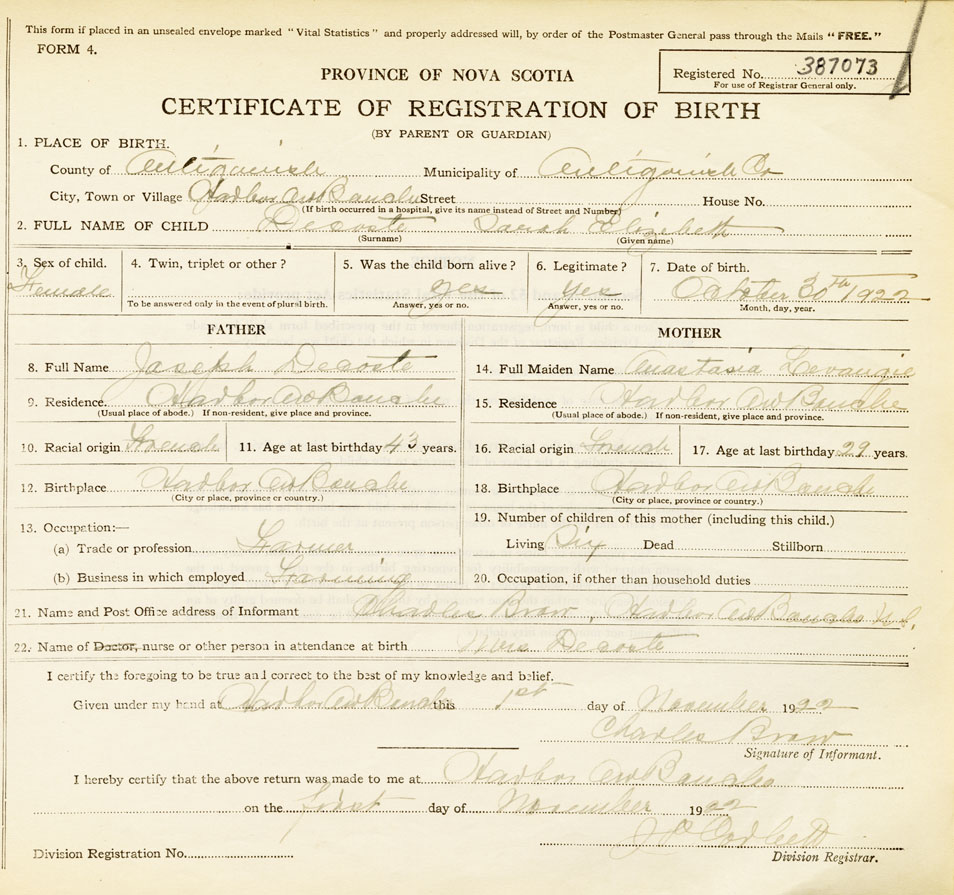 This form if placed in an unsealed envelope marked "Vital Statistics" and properly addressed will, by order of the Postmaster General pass through the Mails "FREE."
FORM 4.
Registered No. 387073
For use of Registrar General only.
PROVINCE OF NOVA SCOTIA
CERTIFICATE OF REGISTRATION OF BIRTH
(BY PARENT OR GUARDIAN)
1. PLACE OF BIRTH.
County of Antigonish Municipality of Antigonish Co
City, Town or Village Harbor Au Bouche Street House No.
(If birth occurred in a hospital, give its name instead of Street and Number)
2. FULL NAME OF CHILD Decoste Sarah Elizebeth
(Surname) (Given name)
3. Sex of child. 4. Twin, triplet or other? 5. Was the child born alive? 6. Legitimate? 7. Date of birth.
Female yes Yes October 30th 1922
To be answered only in the event of plural birth. Answer, yes or no. Answer, yes or no. Month, day, year.
FATHER MOTHER
8. Full Name Joseph Decoste 14. Full Maiden Name Anastasia Levangie
9. Residence. Harbor Au Bouche 15. Residence Harbor Au Bouche
(Usual place of abode.) If non-resident, give place and province. (Usual place of abode.) If non-resident, give place and province.
10. Racial origin French 11. Age at last birthday 43 years. 16. Racial origin French 17. Age at last birthday 29 years.
12. Birthplace Harbor Au Bouche 18. Birthplace Harbor Au Bouche
(City or place, province or country.) (City or place, province or country.)
13. Occupation:— 19. Number of children of this mother (including this child.)
(a) Trade or profession Farmer Living Six Dead Stillborn
(b) Business in which employed Farming 20. Occupation, if other than household duties
21. Name and Post Office address of Informant Charles Brow, Harbor Au Bouche N.S.
22. Name of Doctor, nurse or other person in attendance at birth Mrs Decoste
I certify the foregoing to be true and correct to the best of my knowledge and belief.
Given under my hand at Harbor Au Bouche this 1st day of November 1922
Charles Brow
Signature of Informant.
I hereby certify that the above return was made to me at Harbor Au Bouche
on the first day of November 1922
Corbett
Division Registration No. Division Registrar.